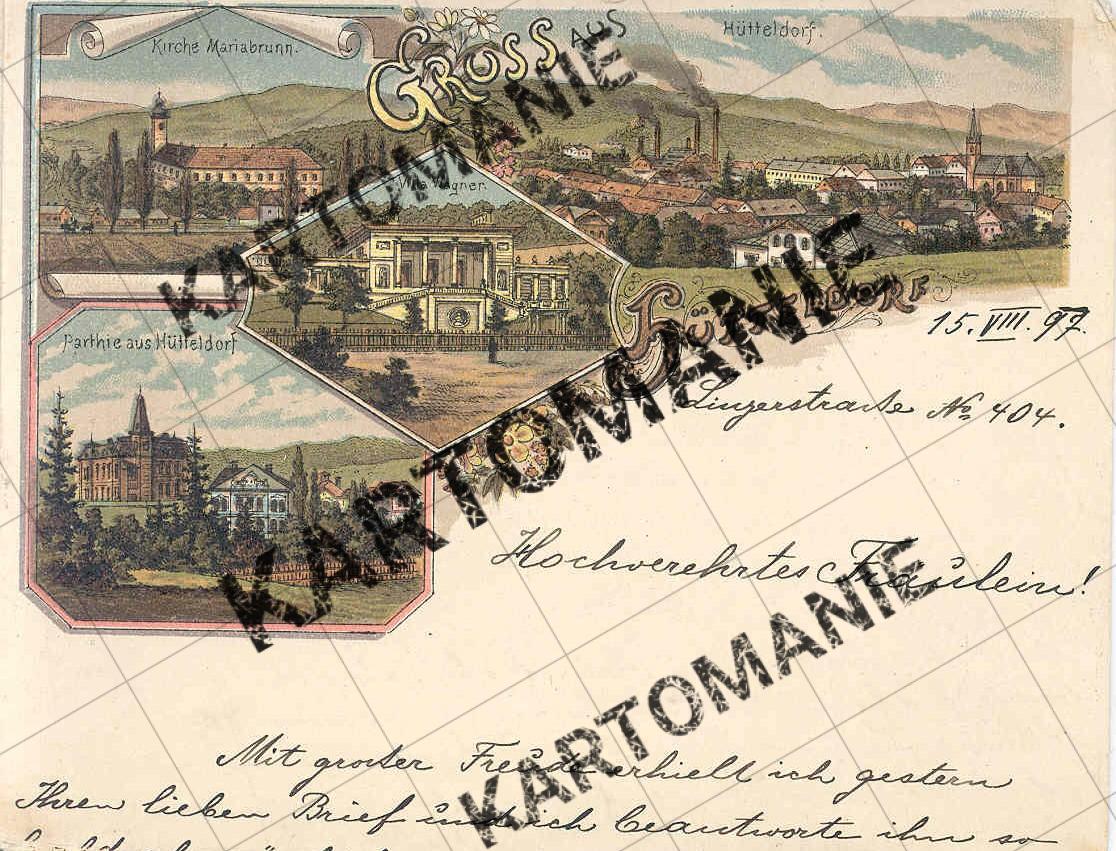 Kirche Mariabrunn.
GRUSS AUS
Hütteldorf.
Villa Wagner.
HÜTTELDORF
Parthie aus Hütteldorf
15. VIII. 97.
Linzerstraße No 404.
Hochverehrtes Fräulein!
Mit großer Freude erhielt ich gestern
Ihren lieben Brief und ich beantworte ihn so
KARTOMANIE
KARTOMANIE
KARTOMANIE